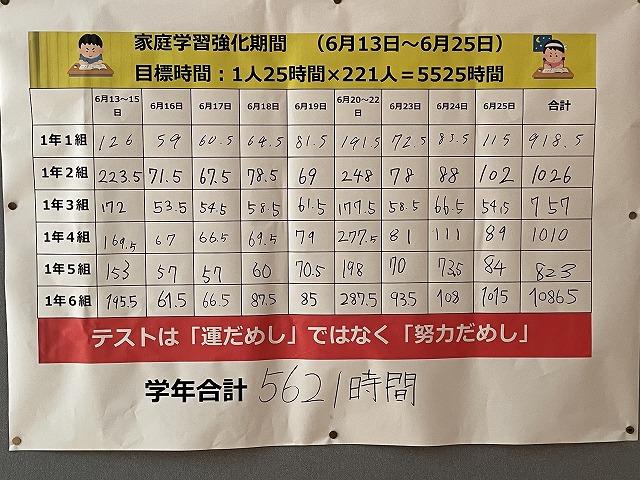 家庭学習強化期間 （6月13日～6月25日）
目標時間：1人25時間×221人＝5525時間
6月13～15日 6月16日 6月17日 6月18日 6月19日 6月20～22日 6月23日 6月24日 6月25日 合計
1年1組 126 59 60.5 64.5 81.5 191.5 72.5 83.5 115 918.5
1年2組 223.5 71.5 67.5 78.5 69 248 78 88 102 1026
1年3組 172 53.5 54.5 58.5 61.5 177.5 58.5 66.5 54.5 757
1年4組 169.5 67 66.5 69.5 79 277.5 81 111 89 1010
1年5組 153 57 57 60 70.5 198 70 73.5 84 823
1年6組 195.5 61.5 66.5 87.5 85 287.5 93.5 108 101.5 1086.5
テストは「運だめし」ではなく「努力だめし」
学年合計 5621時間